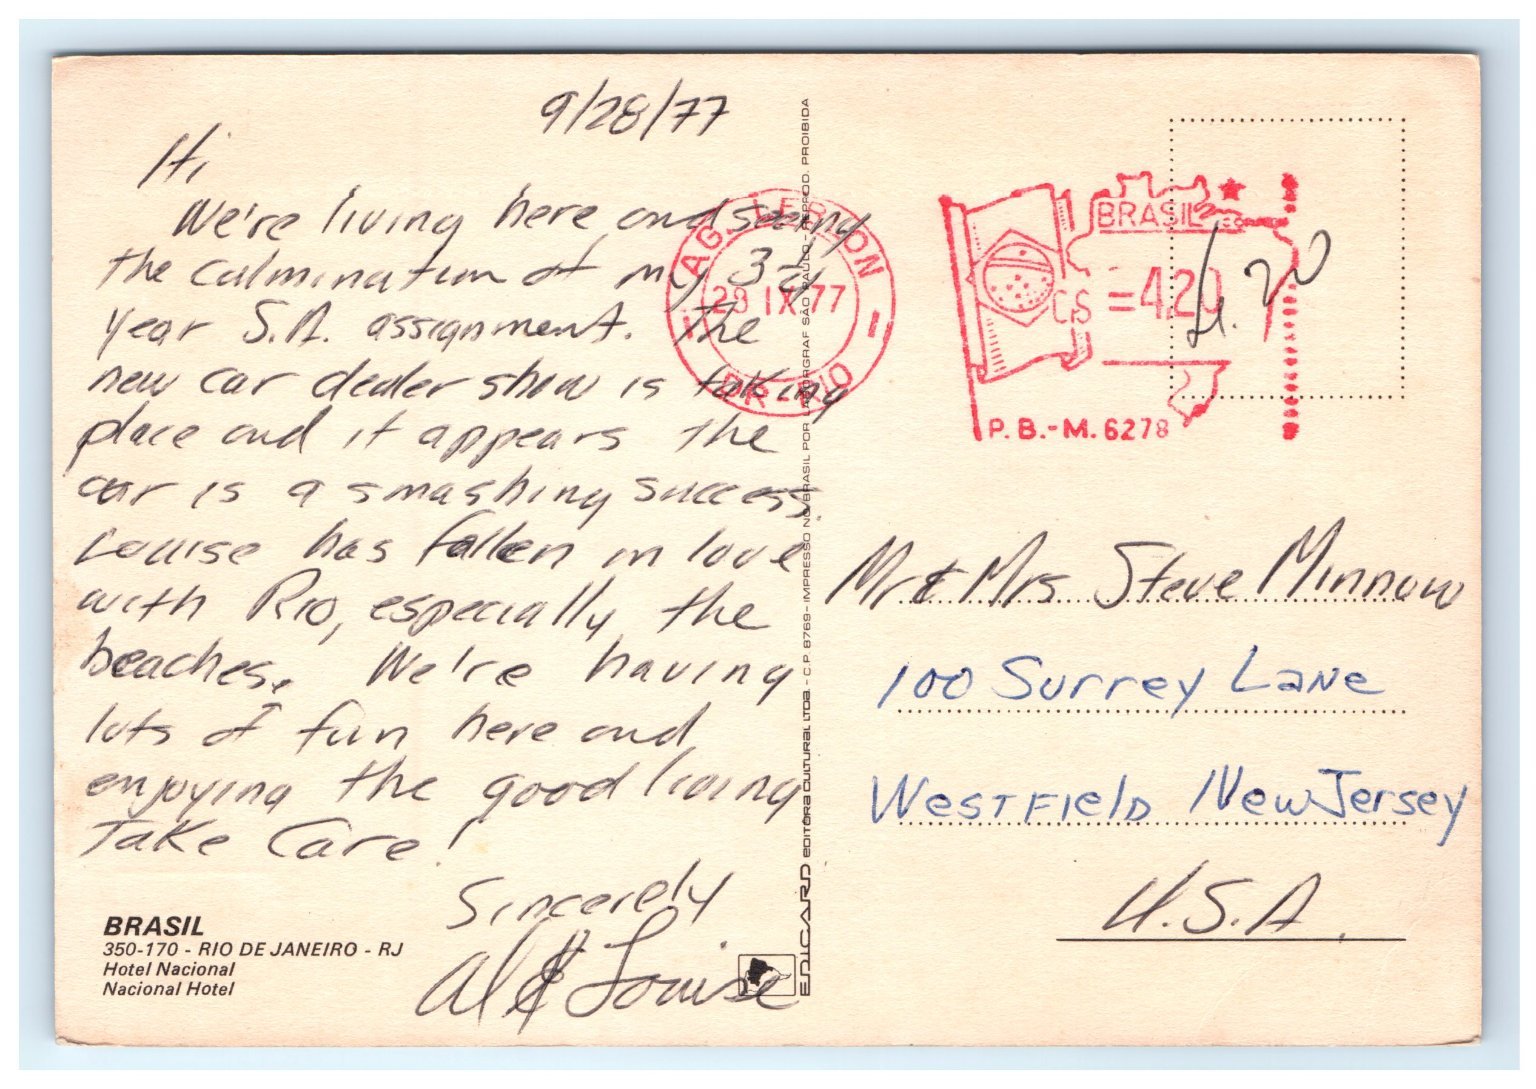 9/28/77
Hi
We're living here and seeing
the culmination of my 3rd
year S.A. assignment. The
new car dealer show is taking
place and it appears the
car is a smashing success.
Louise has fallen in love
with Rio, especially the
beaches. We're having
lots of fun here and
enjoying the good living
Take Care!
Sincerely
Al & Louise
BRASIL
350-170 - RIO DE JANEIRO - RJ
Hotel Nacional
Nacional Hotel
EDICARD EDITORA CULTURAL LTDA. - C.P. 8769 - IMPRESSO NO BRASIL POR SÃO PAULO - REPROD. PROIBIDA
AG. LEBLON
28 IX 77
DR-RIO
BRASIL
=4,20
P.B.-M. 6278
4.20
Mr & Mrs Steve Minnow
100 Surrey Lane
Westfield New Jersey
U.S.A.